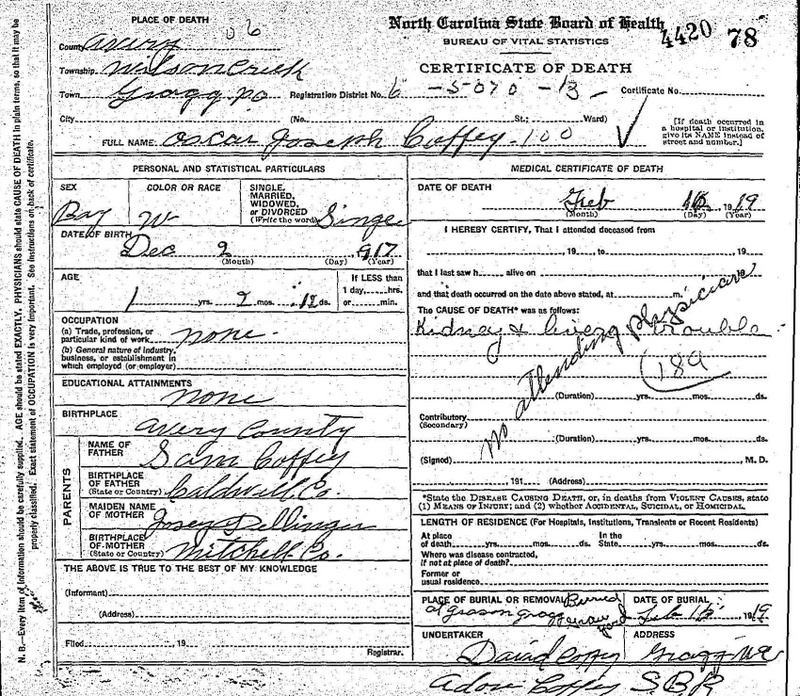 PLACE OF DEATH
06
North Carolina State Board of Health
BUREAU OF VITAL STATISTICS
4420 78
County Avery
Township Wilson Creek
CERTIFICATE OF DEATH
Town Gragg PO Registration District No. 6 -5070-13- Certificate No.
City (No. St.; Ward)
[If death occurred in a hospital or institution, give its NAME instead of street and number.]
FULL NAME: Oscar Joseph Coffey - 100
PERSONAL AND STATISTICAL PARTICULARS
SEX Boy
COLOR OR RACE W
SINGLE, MARRIED, WIDOWED, or DIVORCED (Write the word) Singe
DATE OF BIRTH
Dec 2 917
(Month) (Day) (Year)
AGE
1 yrs. 2 mos. 12 ds.
If LESS than 1 day, hrs. or min.
OCCUPATION
(a) Trade, profession, or particular kind of work none
(b) General nature of industry, business, or establishment in which employed (or employer)
EDUCATIONAL ATTAINMENTS
none
BIRTHPLACE
Avery County
PARENTS
NAME OF FATHER Sam Coffey
BIRTHPLACE OF FATHER (State or Country) Caldwell Co.
MAIDEN NAME OF MOTHER Josey Dellinger
BIRTHPLACE OF MOTHER (State or Country) Mitchell Co.
THE ABOVE IS TRUE TO THE BEST OF MY KNOWLEDGE
(Informant)
(Address)
Filed , 19
Registrar.
MEDICAL CERTIFICATE OF DEATH
DATE OF DEATH
Feb 1919
(Month) (Day) (Year)
I HEREBY CERTIFY, That I attended deceased from
, 19 , to , 19
that I last saw h alive on
and that death occurred on the date above stated, at m.
The CAUSE OF DEATH* was as follows:
Kidney & trouble
189
No attending physician
(Duration) yrs. mos. ds.
Contributory
(Secondary)
(Duration) yrs. mos. ds.
(Signed) M. D.
, 191 (Address)
*State the DISEASE CAUSING DEATH, or, in deaths from VIOLENT CAUSES, state (1) MEANS OF INJURY; and (2) whether ACCIDENTAL, SUICIDAL, or HOMICIDAL.
LENGTH OF RESIDENCE (For Hospitals, Institutions, Transients or Recent Residents)
At place of death yrs. mos. ds. In the State yrs. mos. ds.
Where was disease contracted, if not at place of death?
Former or usual residence
PLACE OF BURIAL OR REMOVAL Buried
at Gragg yard
DATE OF BURIAL
Feb 1919
UNDERTAKER
David Coffey
ADDRESS
Gragg NC
Coffey
N. B.—Every item of information should be carefully supplied. AGE should be stated EXACTLY. PHYSICIANS should state CAUSE OF DEATH in plain terms, so that it may be
properly classified. Exact statement of OCCUPATION is very important. See instructions on back of certificate.